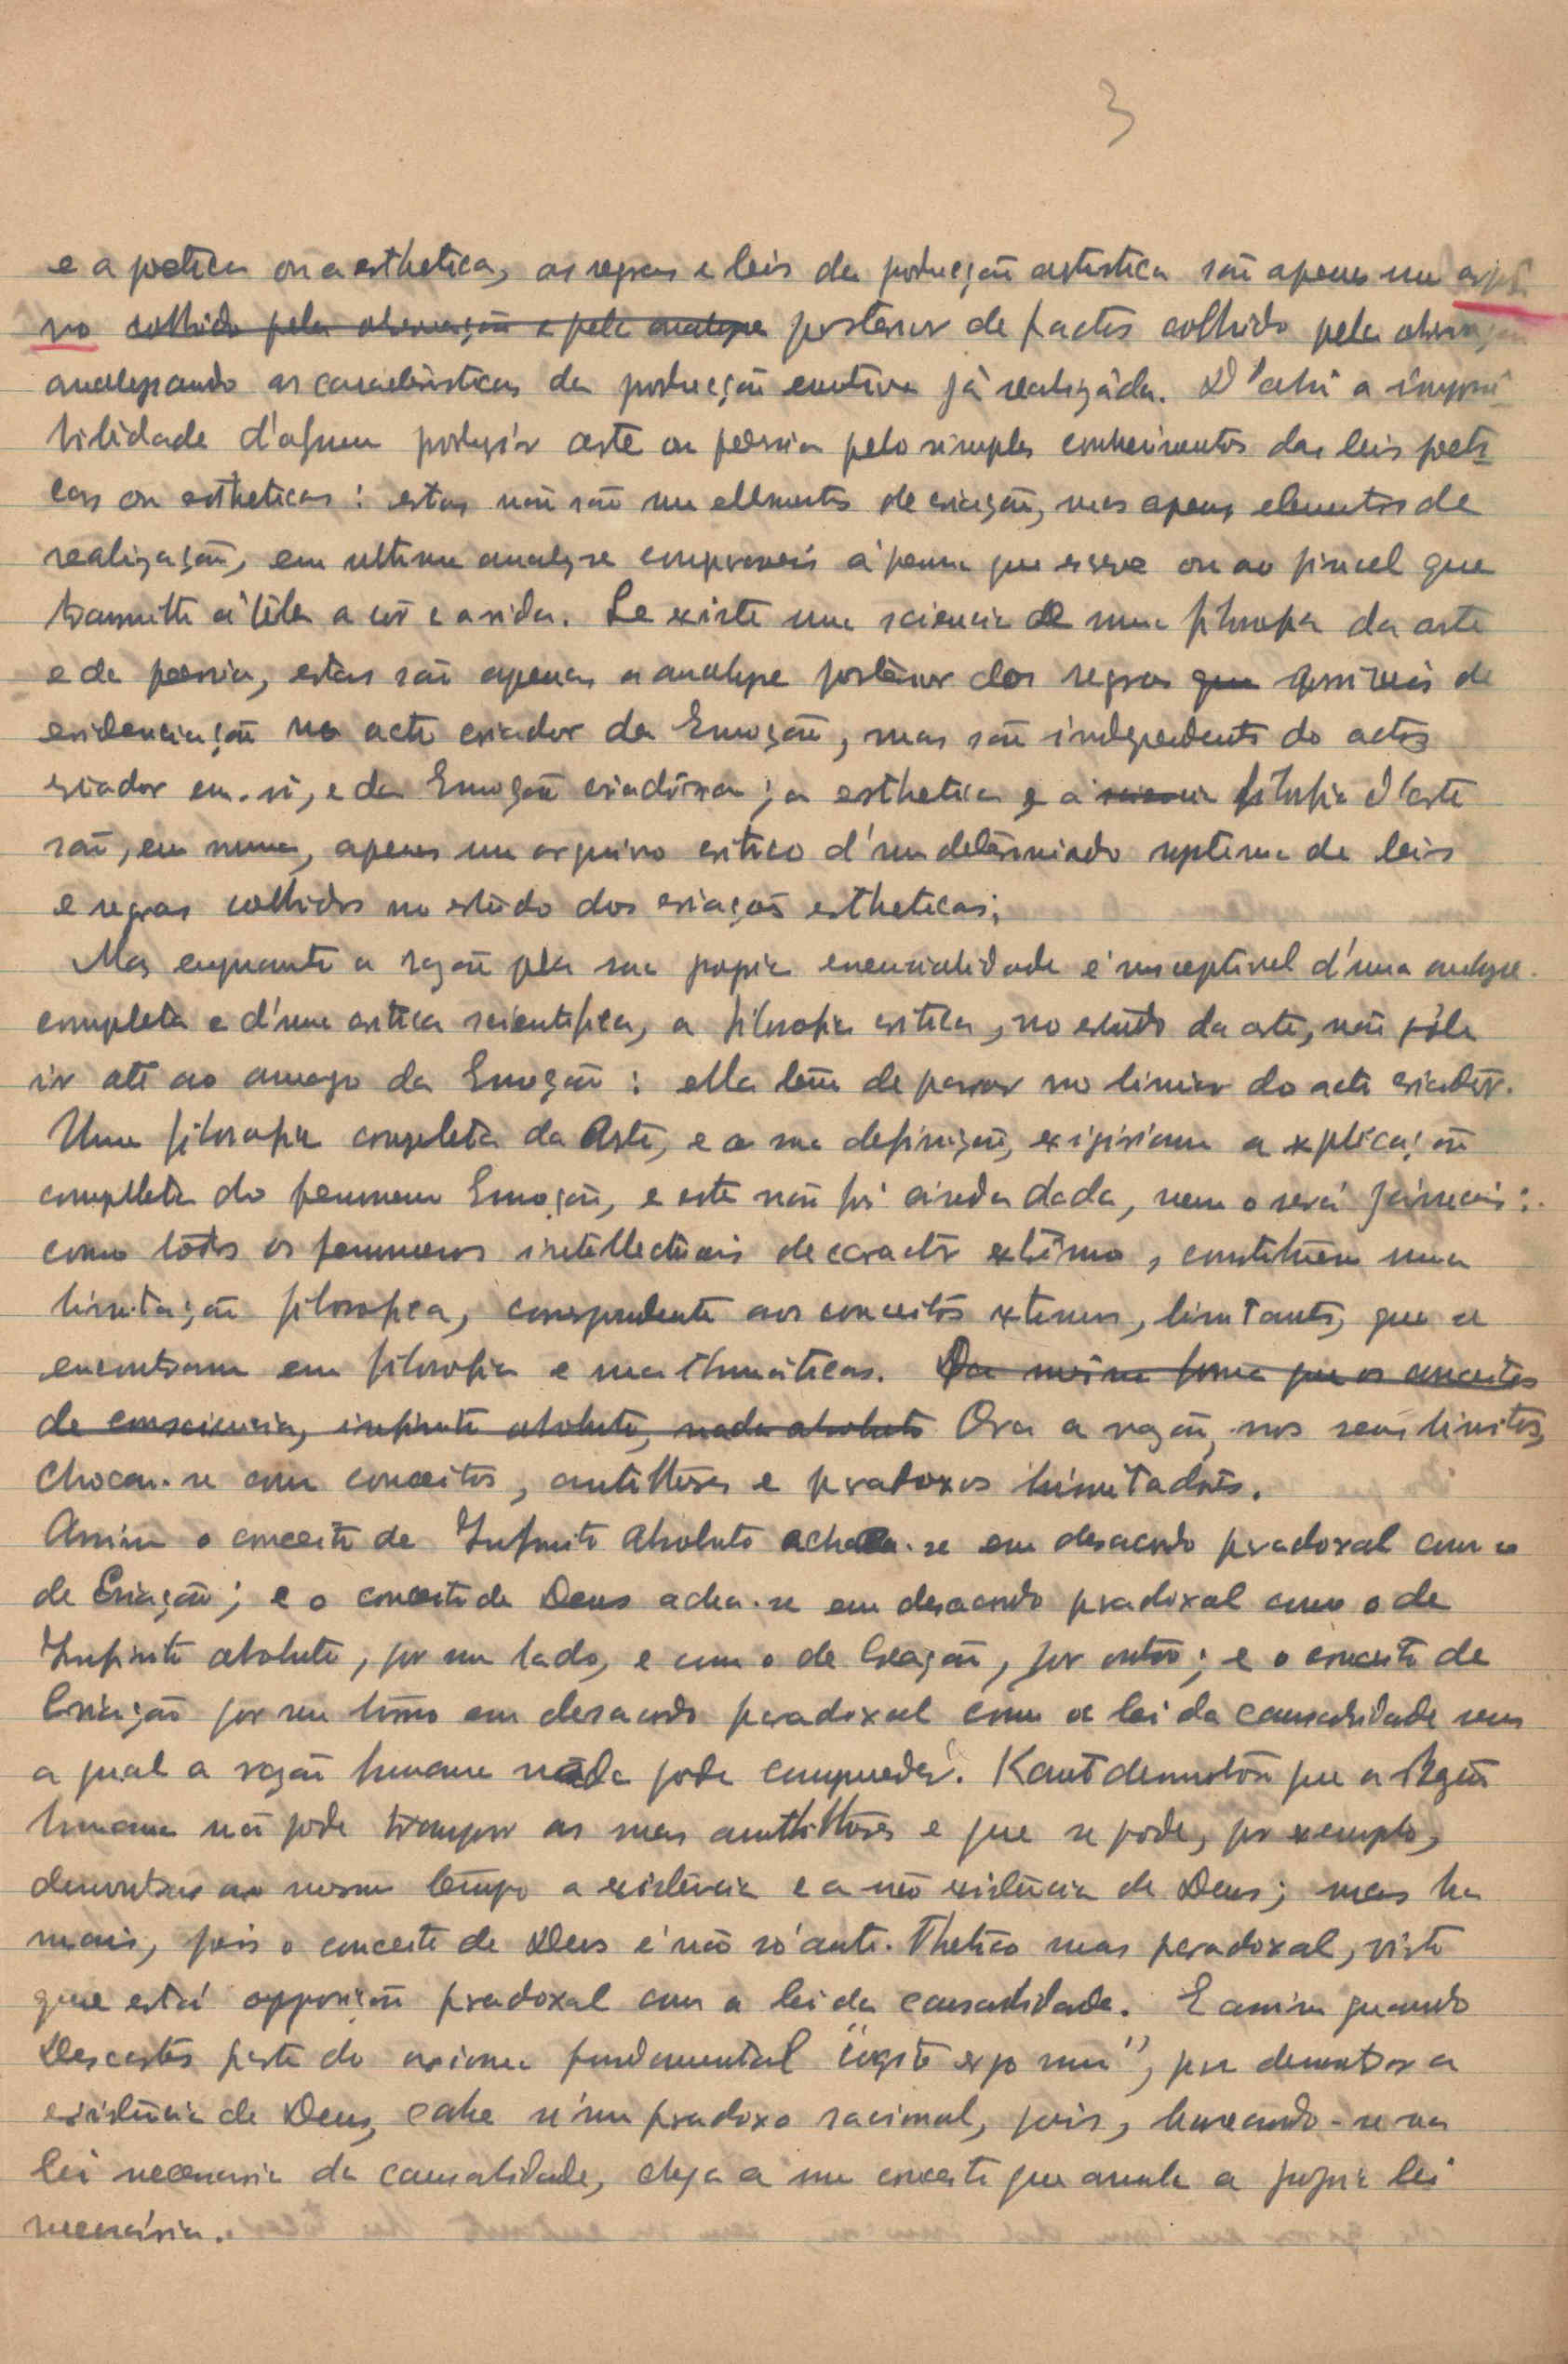 3
e a poetica ou a esthetica, as regras e leis da producção artistica são apenas um
vo colhido pela observação e pela analyse posterior de factos colhido pela observação
analysando as caracteristicas da producção emotiva já realizada. D'ahi a impossi-
bilidade d'alguem produzir arte ou poesia pelo simples conhecimentos das leis poeti-
cas ou estheticas: estas não são um ellementos de criação, mas apenas elementos de
realização, em ultima analyse comparaveis á penna que escreve ou ao pincel que
transmitte á téla a côr e a vida. Se existe uma sciencia de uma filosofia da arte
e da poesia, estas são apenas a analyse posterior dos regras que possiveis de
evidenciação no acto criador da Emoção, mas são independente do actos
criador em-si, e da Emoção criadôra; a esthetica e a sciencia filosofia d'arte
são, em suma, apenas um arquivo critico d'um determinado systema de leis
e regras colhidos no estudo dos criação estheticas;
Mas enquanto a razão pela sua propria essencialidade é susceptivel d'uma analyse
completa e d'uma critica scientifica, a filosofia critica, no estudo da arte, não póde
ir até ao amago da Emoção: ella tem de parar no limiar do acto criadôr.
Uma filosofia completa da Arte, e a sua definição, exigiriam a explicação
complleta do fenomeno Emoção, e esta não foi ainda dada, nem o será jámais:
como todos os fenomenos intellectuais de caracter extrêmo, constituem uma
limitação filosofica, correspondente aos conceitos extremos, limitantes, que se
encontram em filosofia e mathmáticas. Da mesma forma que os conceitos
de consciencia, infinito absoluto, nada absoluto Ora a razão, nos seus limites,
chocam-se com conceitos, antitheses e paradoxos limitadôres.
Assim o conceito de Infinito Absoluto acha-se em desacordo paradoxal com o
de Criação; e o conceito de Deus acha-se em desacordo paradoxal com o de
Infinito absoluto, por um lado, e com o de Creação, por outro; e o conceito de
Criação por seu turno em desacordo paradoxal com a lei da causalidade sem
a qual a razão humana nada pode compreeder. Kant demonstrou que a Razão
humana não pode transpor as suas antitheses e que se pode, por exemplo,
demonstrar ao mesmo tempo a existencia e a não existencia de Deus; mas ha
mais, pois o conceito de Deus é não só anti-thetico mas paradoxal, visto
que está opposição paradoxal com a lei da causalidade. E assim quando
Descartes parte do axioma fundamental "cogito ergo sum", para demonstrar a
existencia de Deus, cahe n'um paradoxo racional, pois, baseando-se na
lei necessaria da causalidade, chega a um conceito que anula a propria lei
necessária.